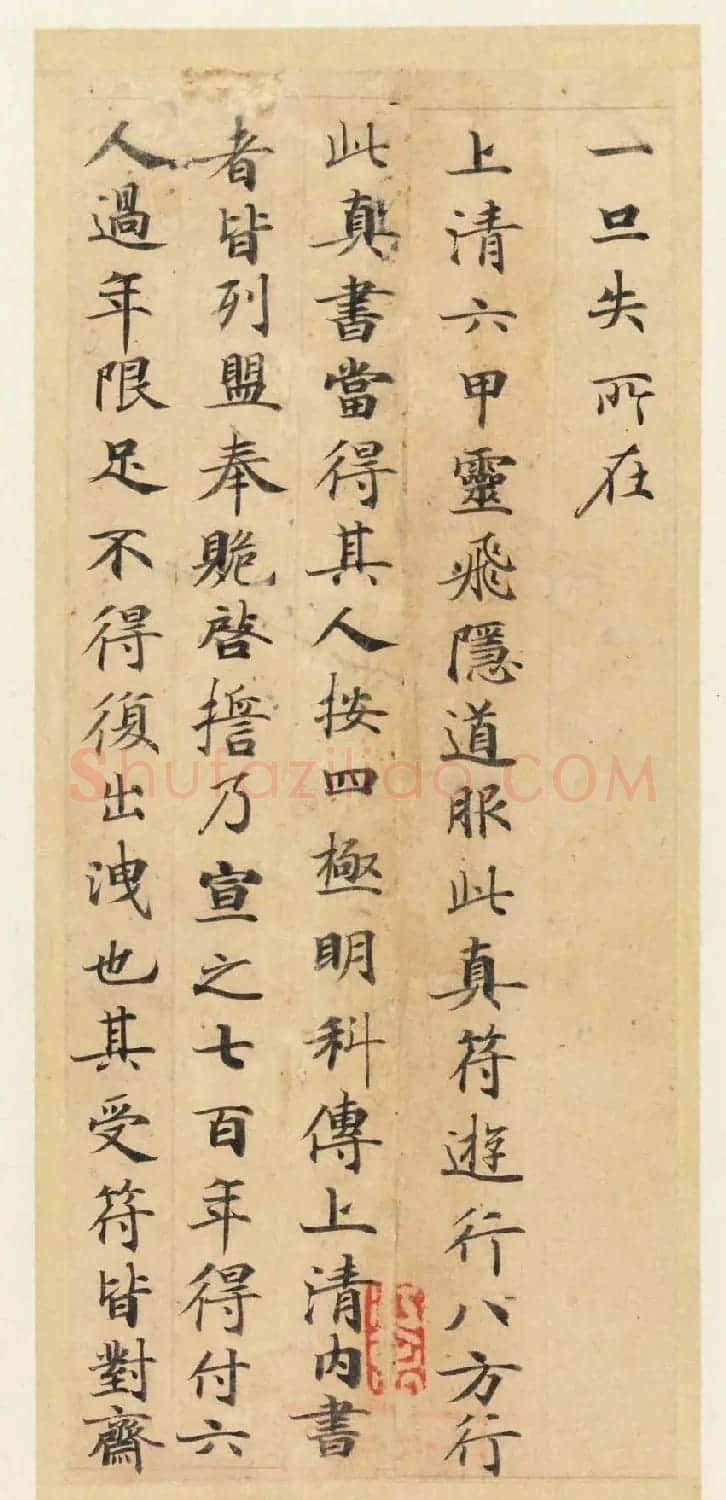 一旦失所在
上清六甲靈飛隱道服此真符遊行八方行
此真書當得其人按四極明科傳上清內書
者皆列盟奉贶啓擔乃宣之七百年得付六
人過年限足不得復出洩也其受符皆對齋
Shufaziliao.COM